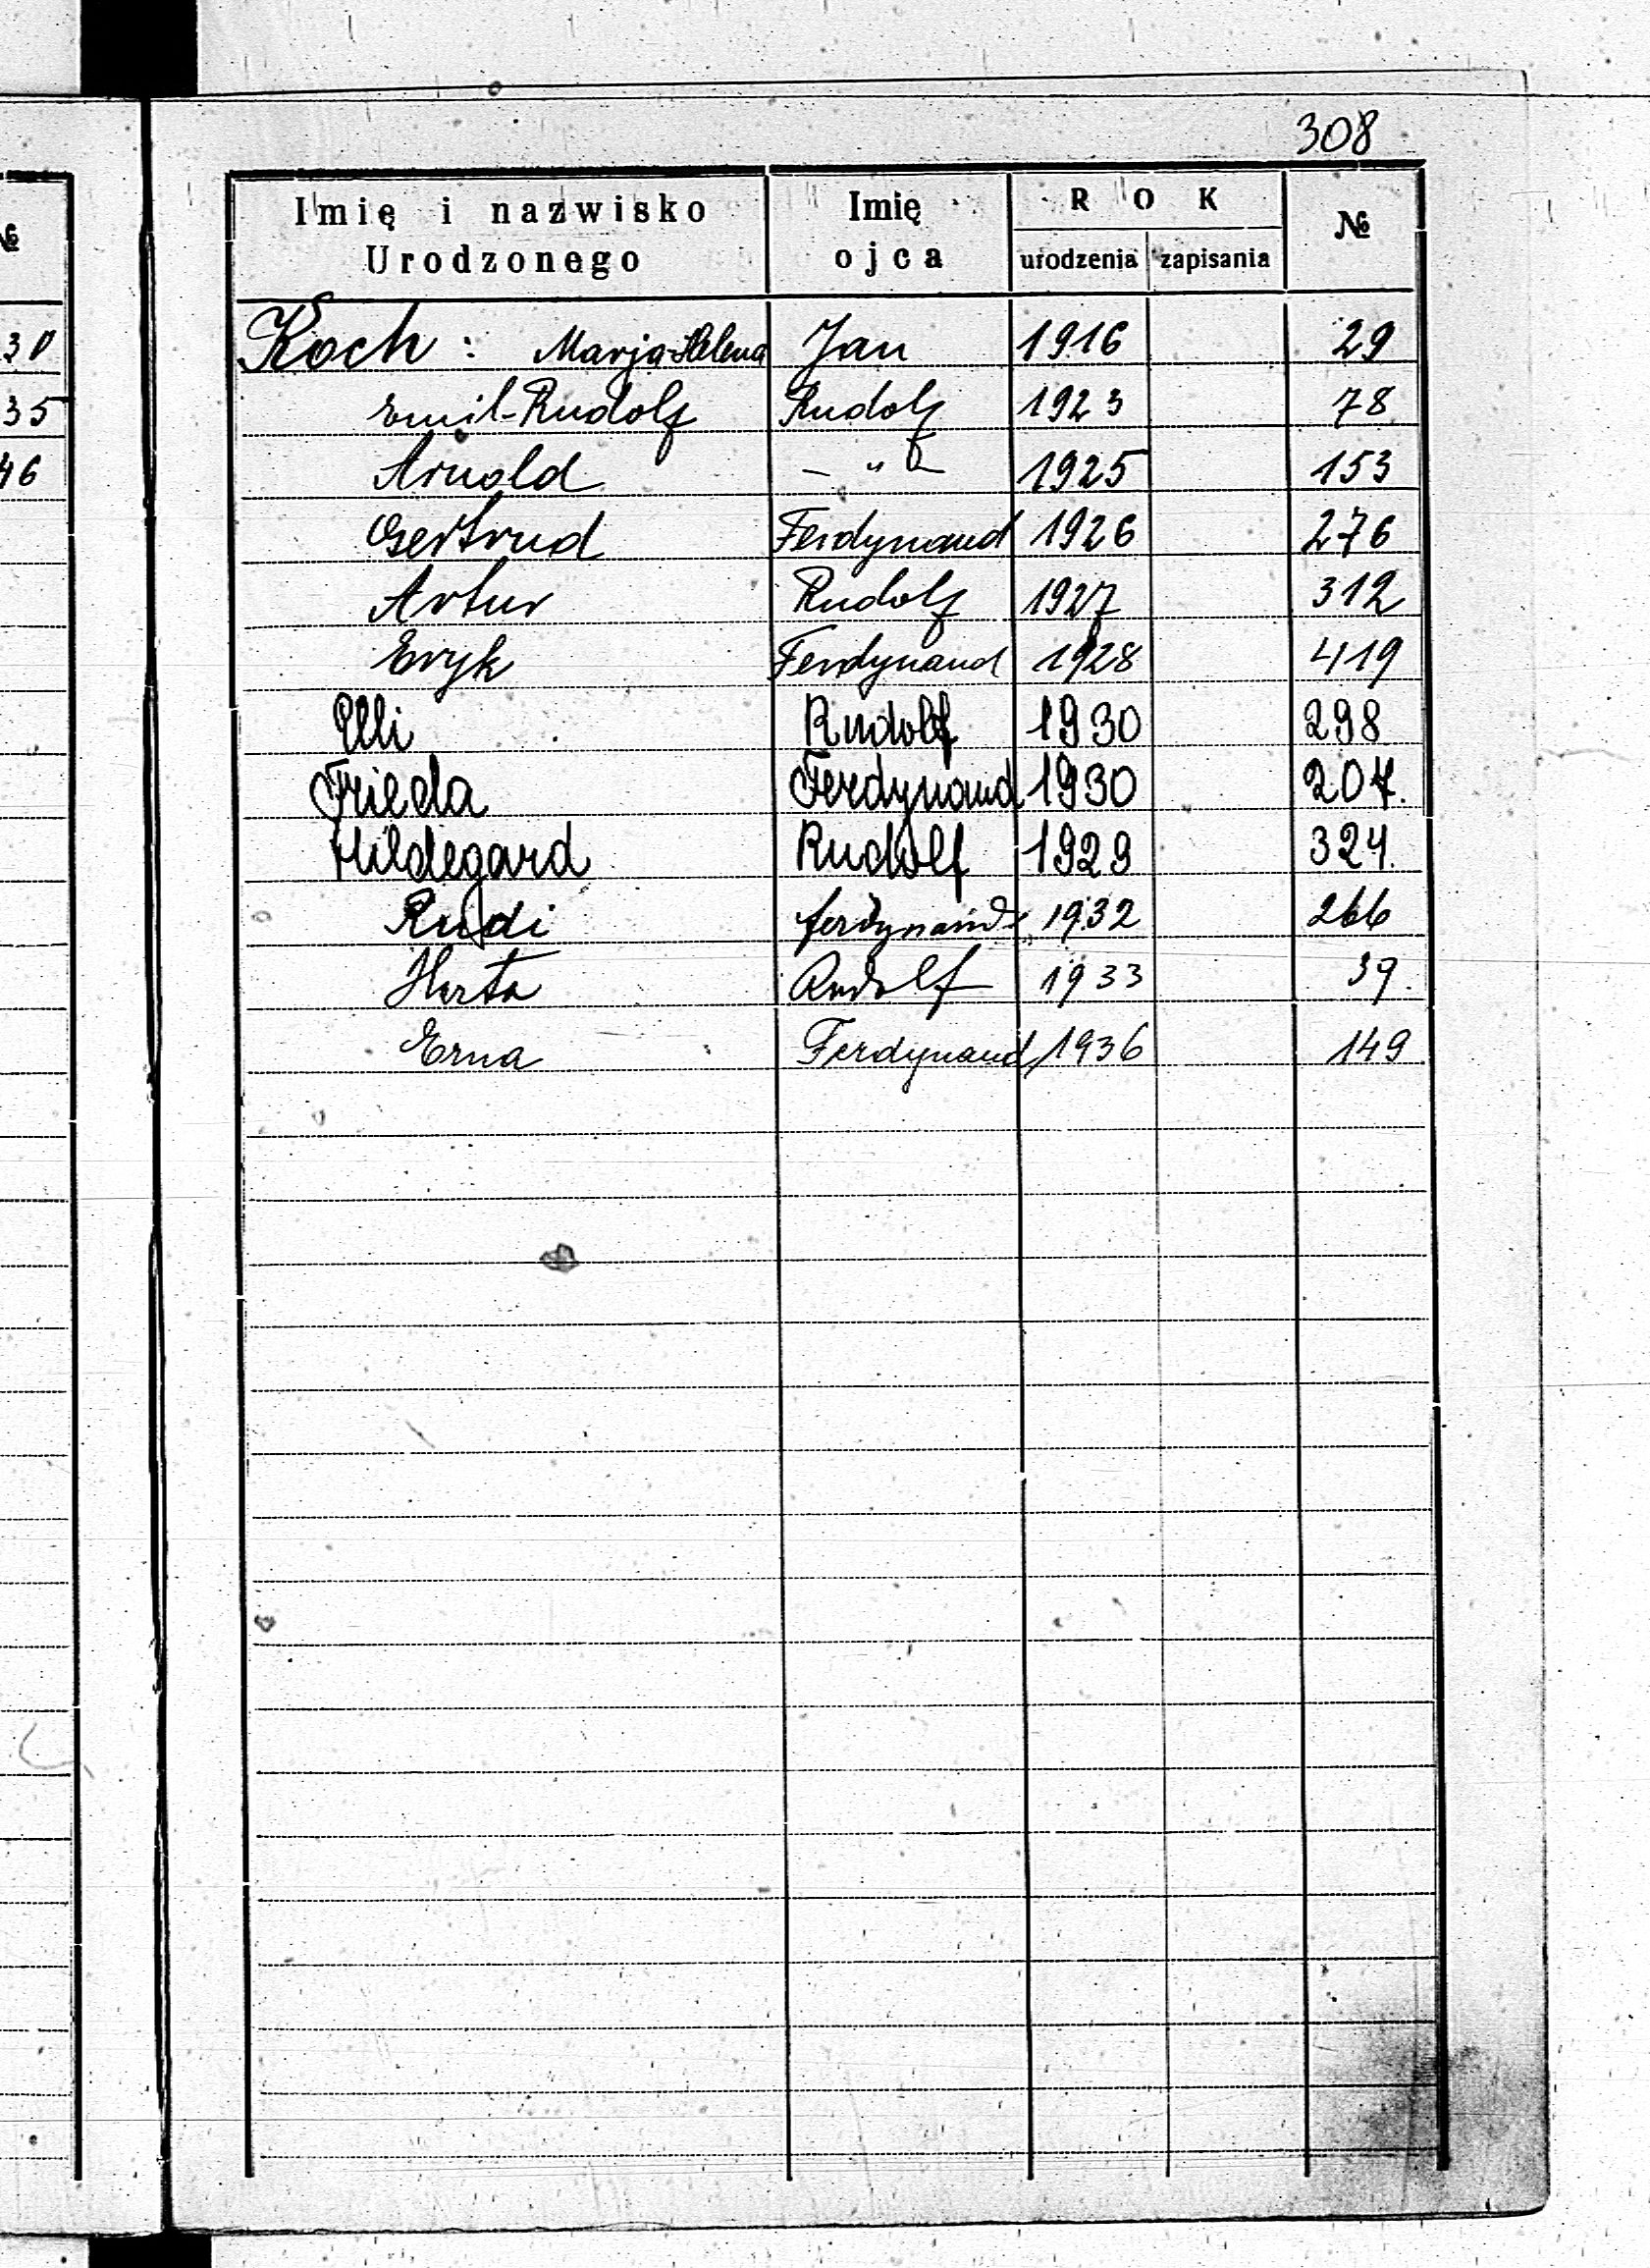 308
№
Imię i nazwisko Urodzonego Imię ojca ROK urodzenia zapisania №
30
Koch: Marja-Helena Jan 1916 29
35
Emil-Rudolf Rudolf 1923 78
46
Arnold — „ — 1925 153
Gertrud Ferdynand 1926 276
Artur Rudolf 1927 312
Eryk Ferdynand 1928 419
Elli Rudolf 1930 298
Frieda Ferdynand 1930 207.
Hildegard Rudolf 1929 324.
Rudi ferdynand 1932 266
Herta Rudolf 1933 39.
Erna Ferdynand 1936 149